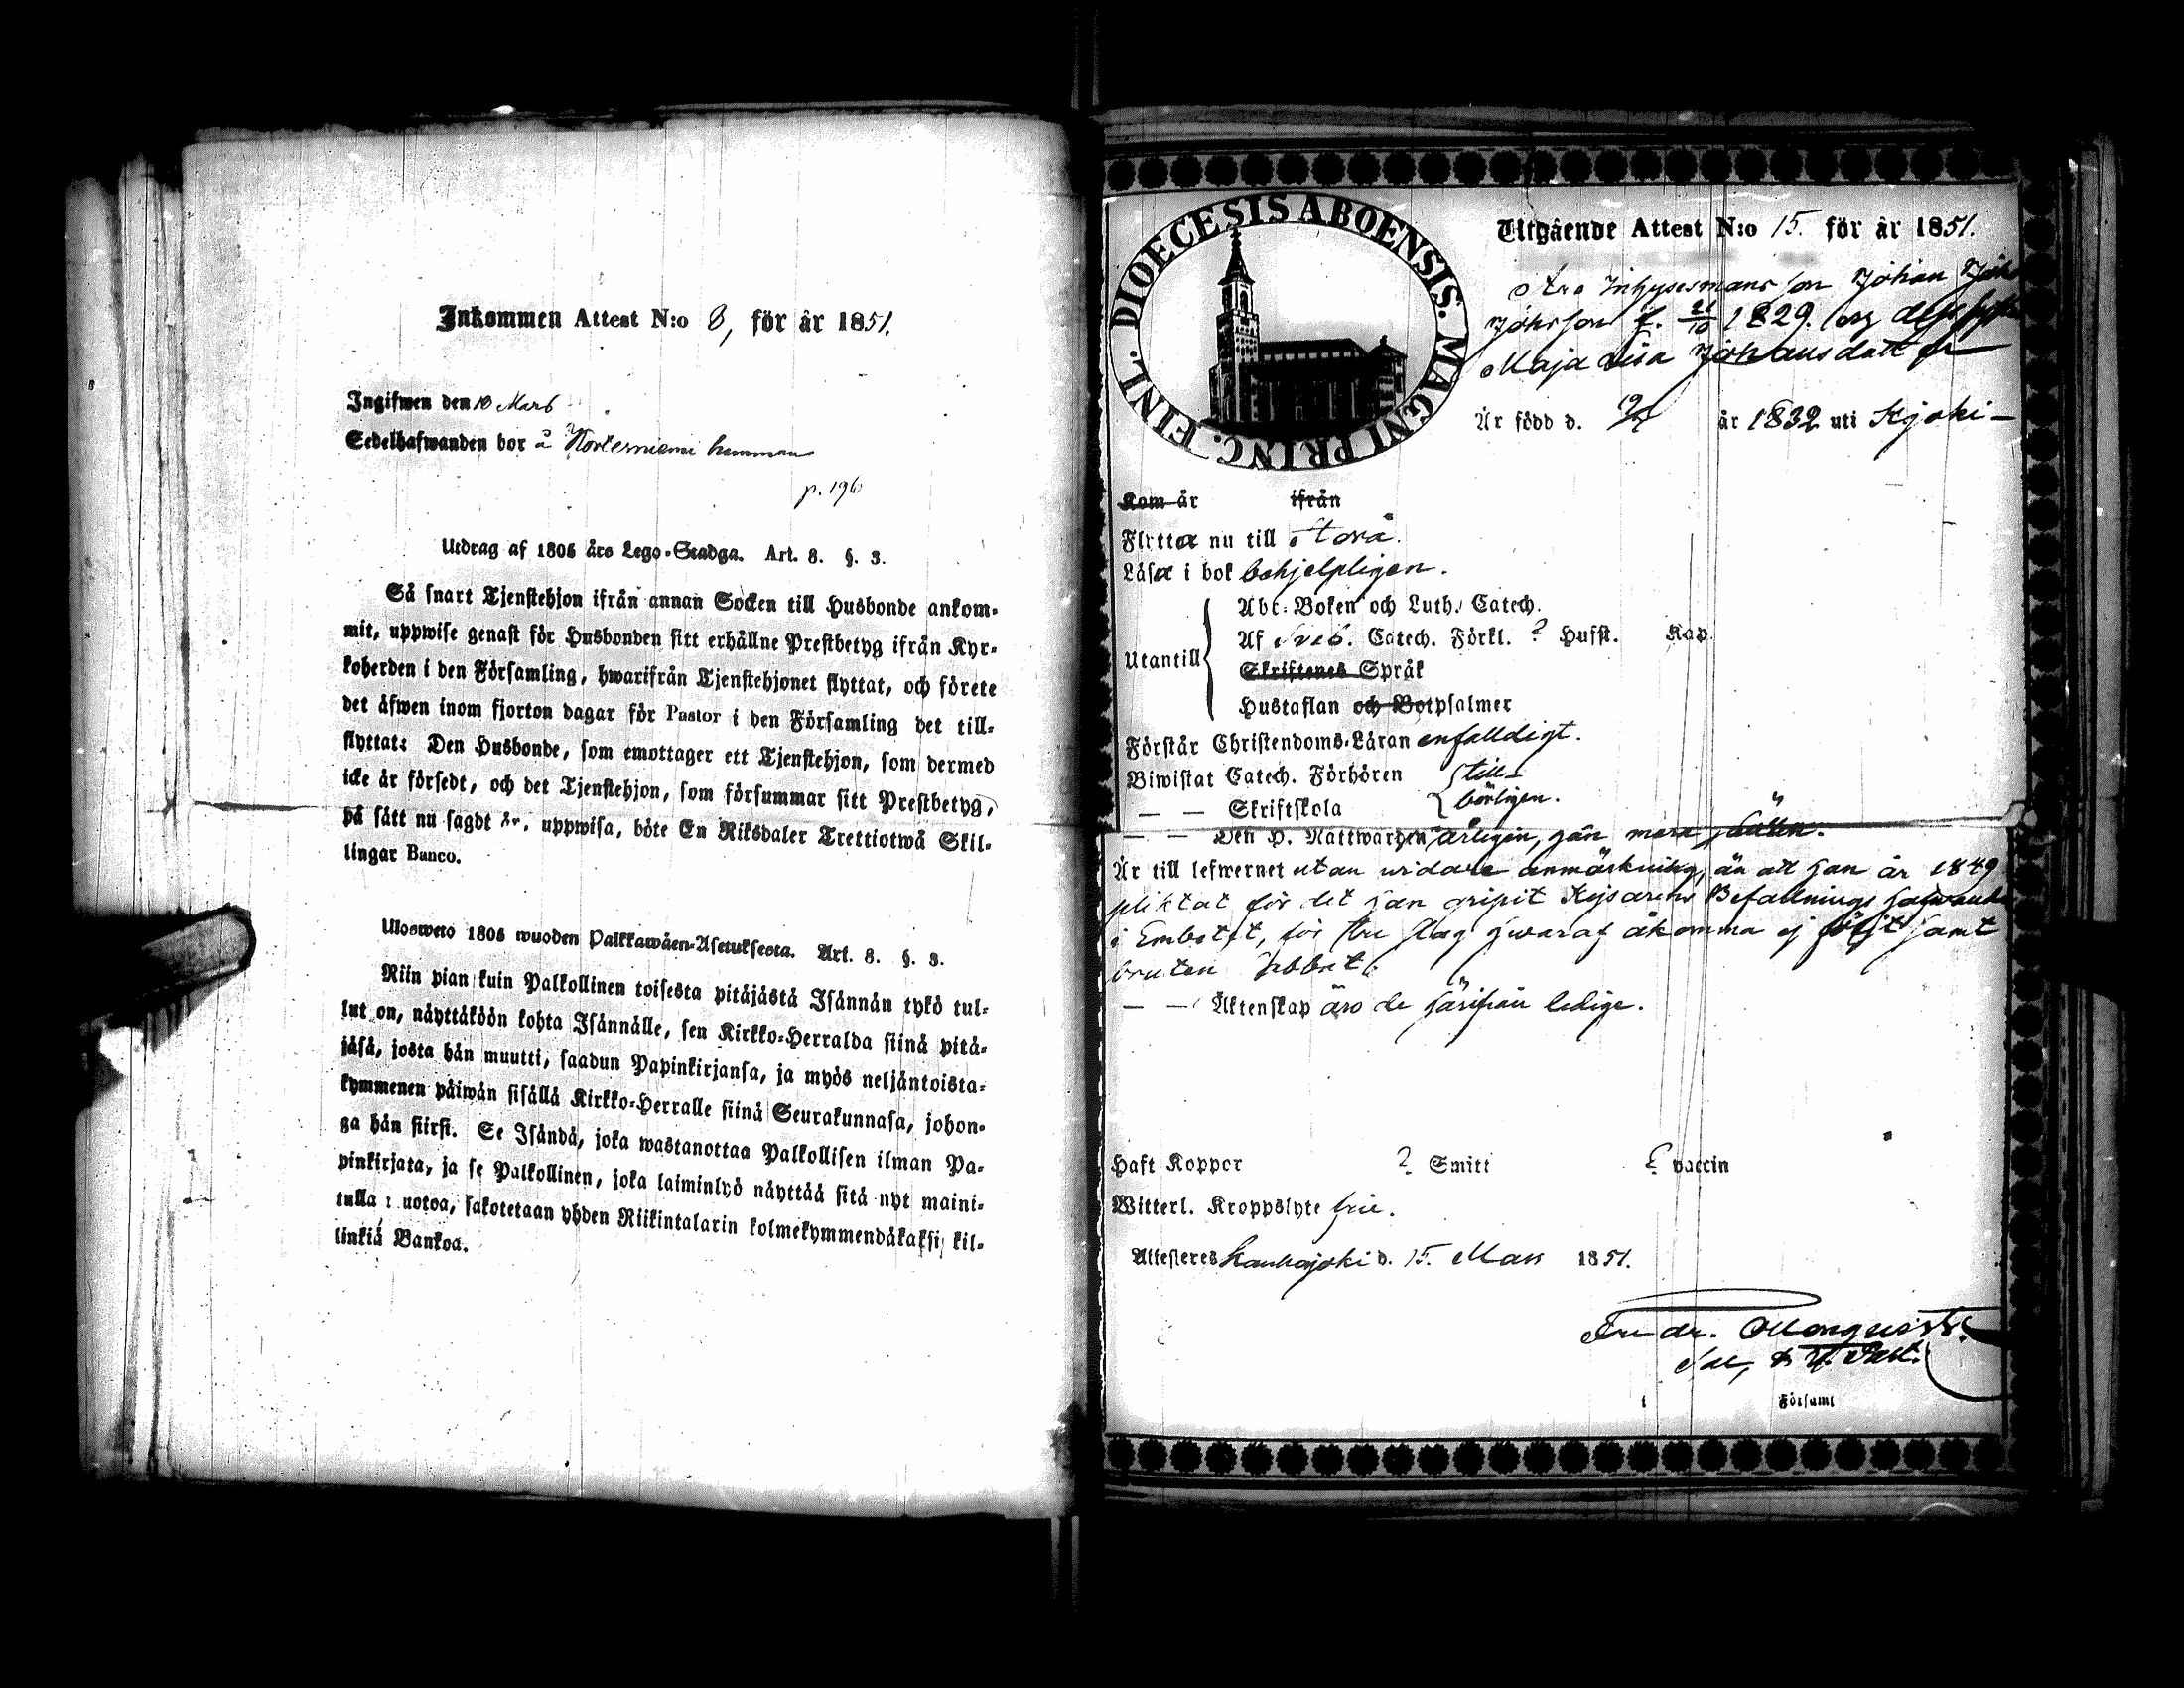 Inkommen Attest N:o 8, för år 1851.
Ingifwen den 18 Mars
Sedelhafwanden bor å hemman
p. 196
Utdrag af 1805 års Lego-Stadga. Art. 8. §. 3.
Så snart Tjenstehjon ifrån annan Socken till Husbonde ankom-
mit, uppwise genast för Husbonden sitt erhållne Prestbetyg ifrån Kyr-
koherden i den Församling, hwarifrån Tjenstehjonet flyttat, och förete
det äfwen inom fjorton dagar för Pastor i den Församling det till-
flyttat: Den Husbonde, som emottager ett Tjenstehjon, som dermed
icke är försedt, och det Tjenstehjon, som försummar sitt Prestbetyg,
på sätt nu sagdt är, uppwisa, böte En Riksdaler Trettiotwå Skil-
lingar Banco.
Ulosweto 1805 wuoden Palkkawäen-Asetuksesta. Art. 8. §. 3.
Niin pian kuin Palkollinen toisesta pitäjästä Isännän tykö tul-
lut on, näyttäköön kohta Isännälle, sen Kirkko-Herralda siinä pitä-
jäsä, josta hän muutti, saadun Papinkirjansa, ja myös neljäntoista-
kymmenen päiwän sisällä Kirkko-Herralle siinä Seurakunnasa, johon-
ga hän siirsi. Se Isändä, joka wastanottaa Palkollisen ilman Pa-
pinkirjata, ja se Palkollinen, joka laiminlyö näyttää sitä nyt maini-
tulla muotoa, sakotetaan yhden Riikintalarin kolmekymmendäkaksi kil-
linkiä Bankoa.
DIOECESIS ABOENSIS. MAGNI PRINC. FINL.
Utgående Attest N:o 15. för år 1851.
Inhysesmans son Johan
Johnson f. 21/10 1829. och
Maja Lisa Johansdotter
Är född d. år 1832 uti Kjoki-
Kom år ifrån
Flytta nu till Storå.
Läsa i bok behjelpligen.
Utantill
Abc-Boken och Luth. Catech.
Af Sveb. Catech. Förkl. ? Husst. Kap.
Skriftenes Språk
Hustaflan och Botpsalmer
Förstår Christendoms-Läran enfalldigt.
Biwistat Catech. Förhören till-
— — Skriftskola börligen.
— — Den H. Nattwarden årligen, han mera sällan.
Är till lefwernet utan widare anmärkning, än att han år 1849
pliktat för det han gripit Kejsarens Befallnings hafwande
i Embetet, för tre slag hwaraf åkomma ej följt samt
bruten
— — Äktenskap äro de härifrån ledige.
Haft Koppor ? Smitt ? vaccin
Witterl. Kroppslyte frie.
Attesteres Kauhajoki d. 15. Mars 1851.
Fredr.
i Församl